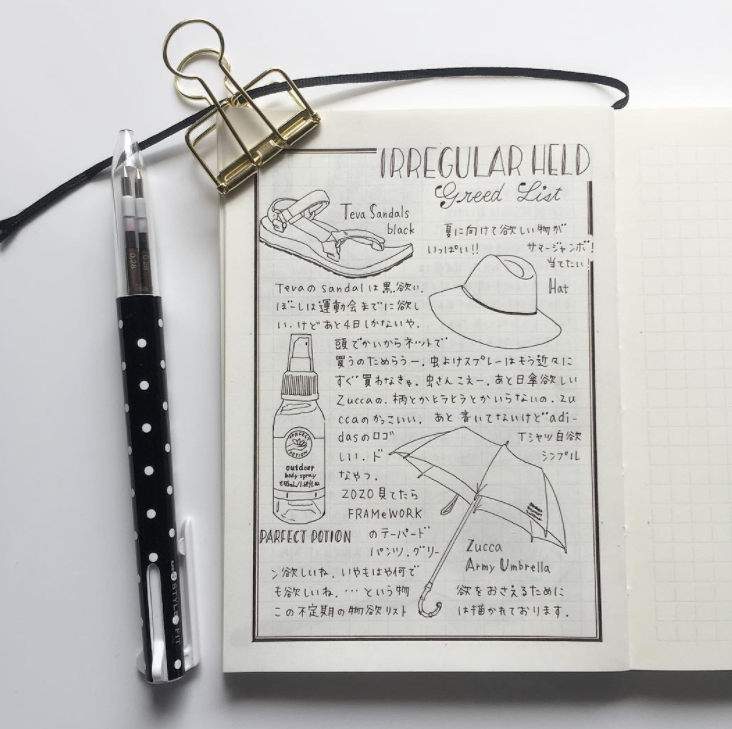 IRREGULAR HELD
Greed List
Teva Sandals
black
夏に向けて欲しい物が
いっぱい!!
サマージャンボ!
当てたい!
Hat
Tevaのsandalは黒欲い.
ぼーしは運動会までに欲し
い.けどあと4日しかないや.
頭でかいからネットで
買うのためらうー.虫よけスプレーはもう近々に
すぐ買わなきゃ.虫さんこえー.あと日傘欲しい
Zuccaの.柄とかヒラヒラとかいらないの.zu
ccaのかっこいい. あと書いてないけど adi-
dasのロゴ
Tシャツ白欲
しい.ド
シンプル
なやつ.
ZOZO見てたら
FRAMeWORK
のテーパード
パンツ.グリー
ン欲しいね.いやもはや何で
も欲しいね.…という物
欲をおさえるために
この不定期の物欲リスト
は描かれております.
outdoor
body spray
PARFECT POTION
Zucca
Army Umbrella
0.28
0.28
STYLE FIT